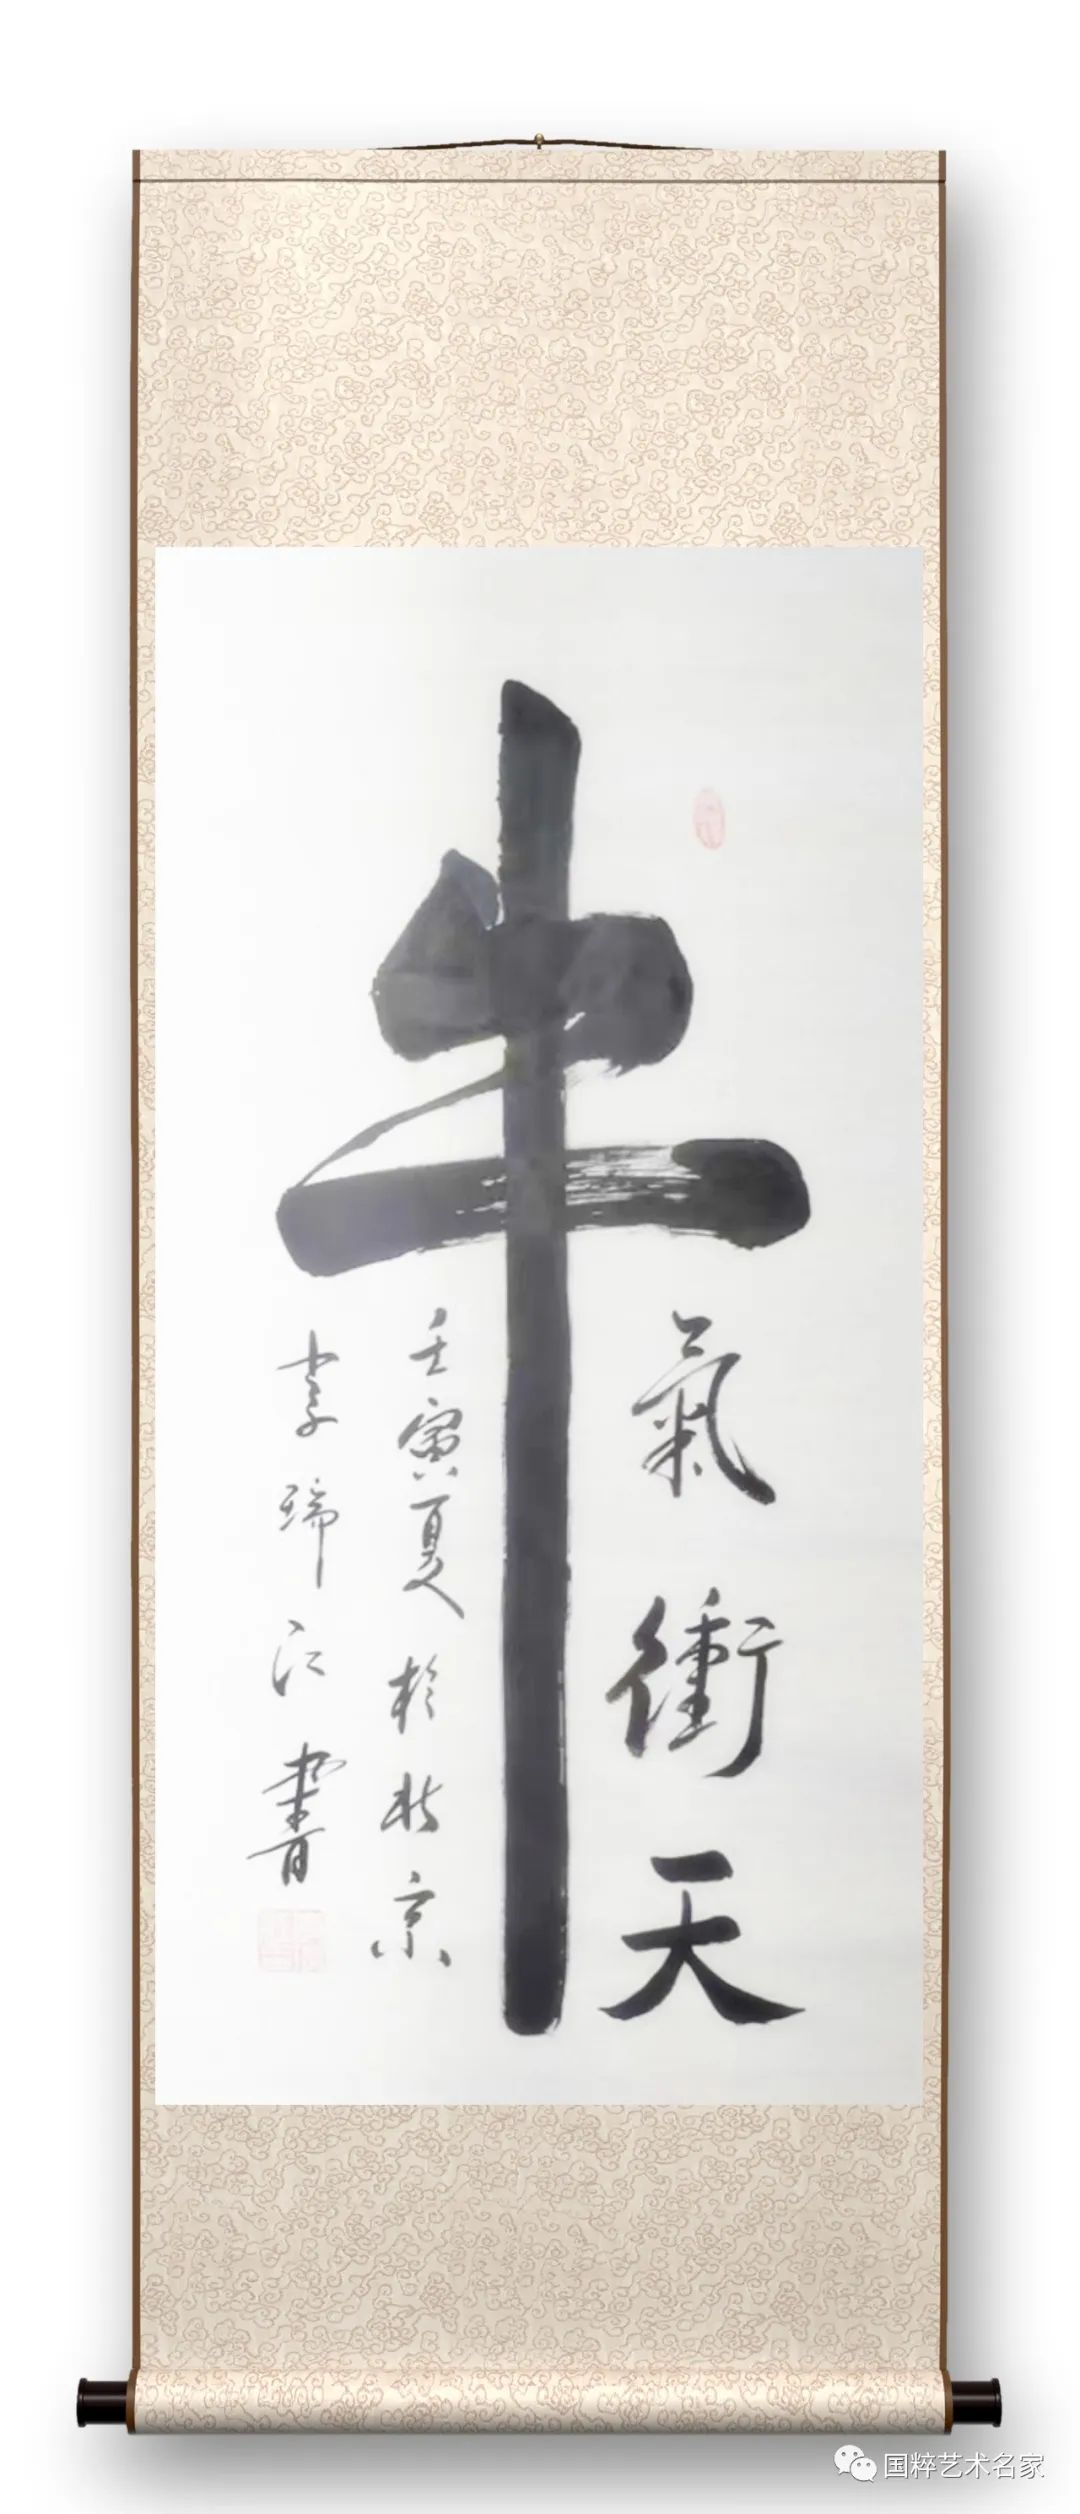 牛
氣衝天
壬寅夏於北京
李瑞江書
国粹艺术名家